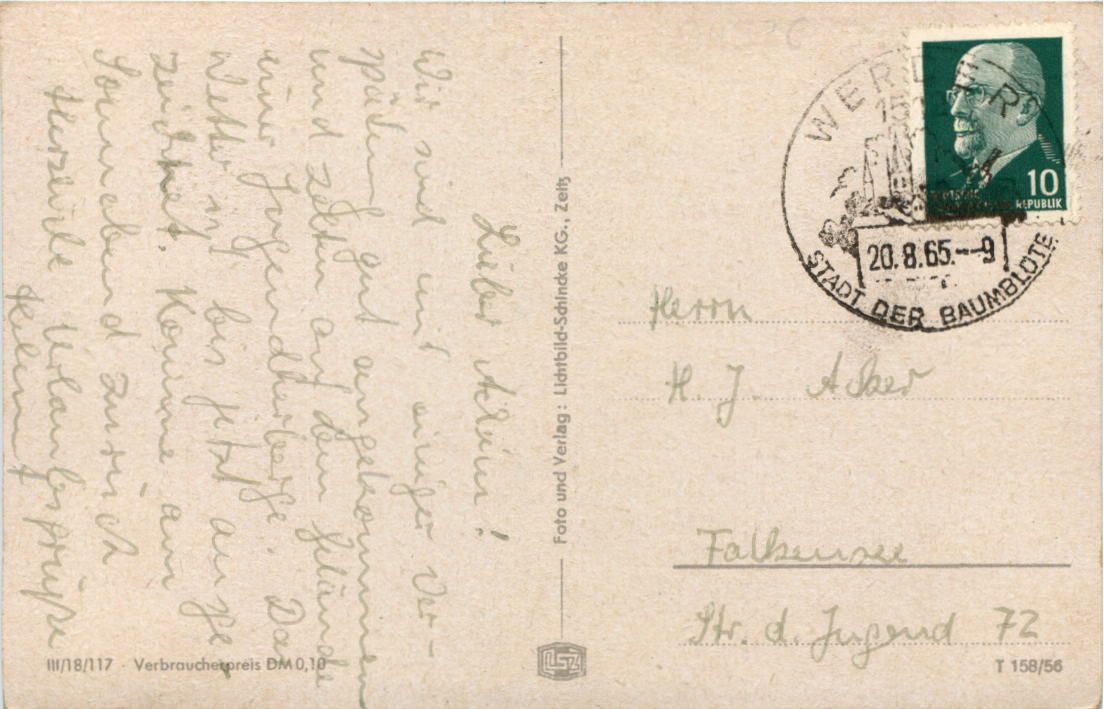 Lieber Achim!
Wir sind mit einiger Ver-
spätung gut angekommen
und zelten auf dem Gelände
einer Jugendherberge. Das
Wetter ist bis jetzt ausge-
zeichnet. Komme am
Sonnabend zurück
Herzliche Urlaubsgrüße
Foto und Verlag: Lichtbild-Schincke KG., Zeitz
WERDER
DEUTSCHE
REPUBLIK
10
20.8.65.--9
STADT DER BAUMBLÜTE
Herrn
H. J. Acker
Falkensee
Str. d. Jugend 72
III/18/117 · Verbraucherpreis DM 0,10
LSZ
T 158/56